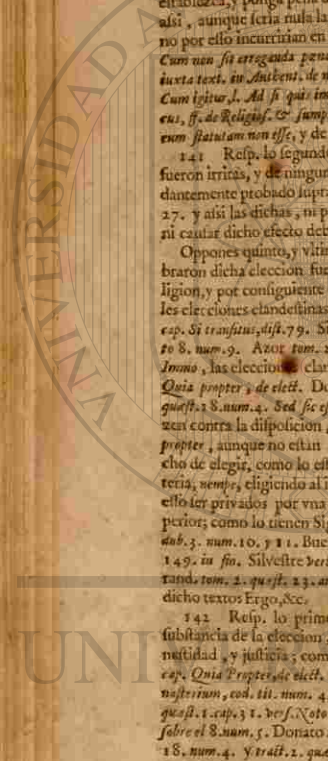 establezca, y ponga pena
assi, aunque seria nula la
no por esso incurririan en
Cum non sit erroganda pœna
iuxta text. in Authent. de n
Cum igitur, l. Ad si quis im
cus, ff. de Religios. & sump
eum statutam non esse, y de
141 Resp. lo segundo
fueron irritas, y de ningun
dantemente probado supra
27. y assi las dichas, ni p
ni causar dicho efecto deb
Oppones quinto, y vltim
braron dicha eleccion fue
ligion, y por consiguiente
les elecciones clandestinas
cap. Si transitus, dist. 79. S
to 8. num. 9. Azor tom. 2
Immo, las elecciones clan
Quia propter, de elect. Do
quæst. 18. num. 4. Sed sic es
zen contra la disposicion
propter, aunque no estan
cho de elegir, como lo est
teria, nempe, eligiendo al i
esso ser privados por vna
perior; como lo tienen Sil
dub. 3. num. 10. y 11. Bue
149. in fin. Silvestre verb
rand. tom. 2. quæst. 23. ar
dicho textos Ergo, &c.
142 Resp. lo prime
substancia de la eleccion
nestidad, y justicia; com
cap. Quia Propter, de elect.
nasterium, eod. tit. num. 4
quæst. 1. cap. 31. vers. Noto
sobre el 8. num. 5. Donato
18. num. 4. y tract. 2. quæ
UNI